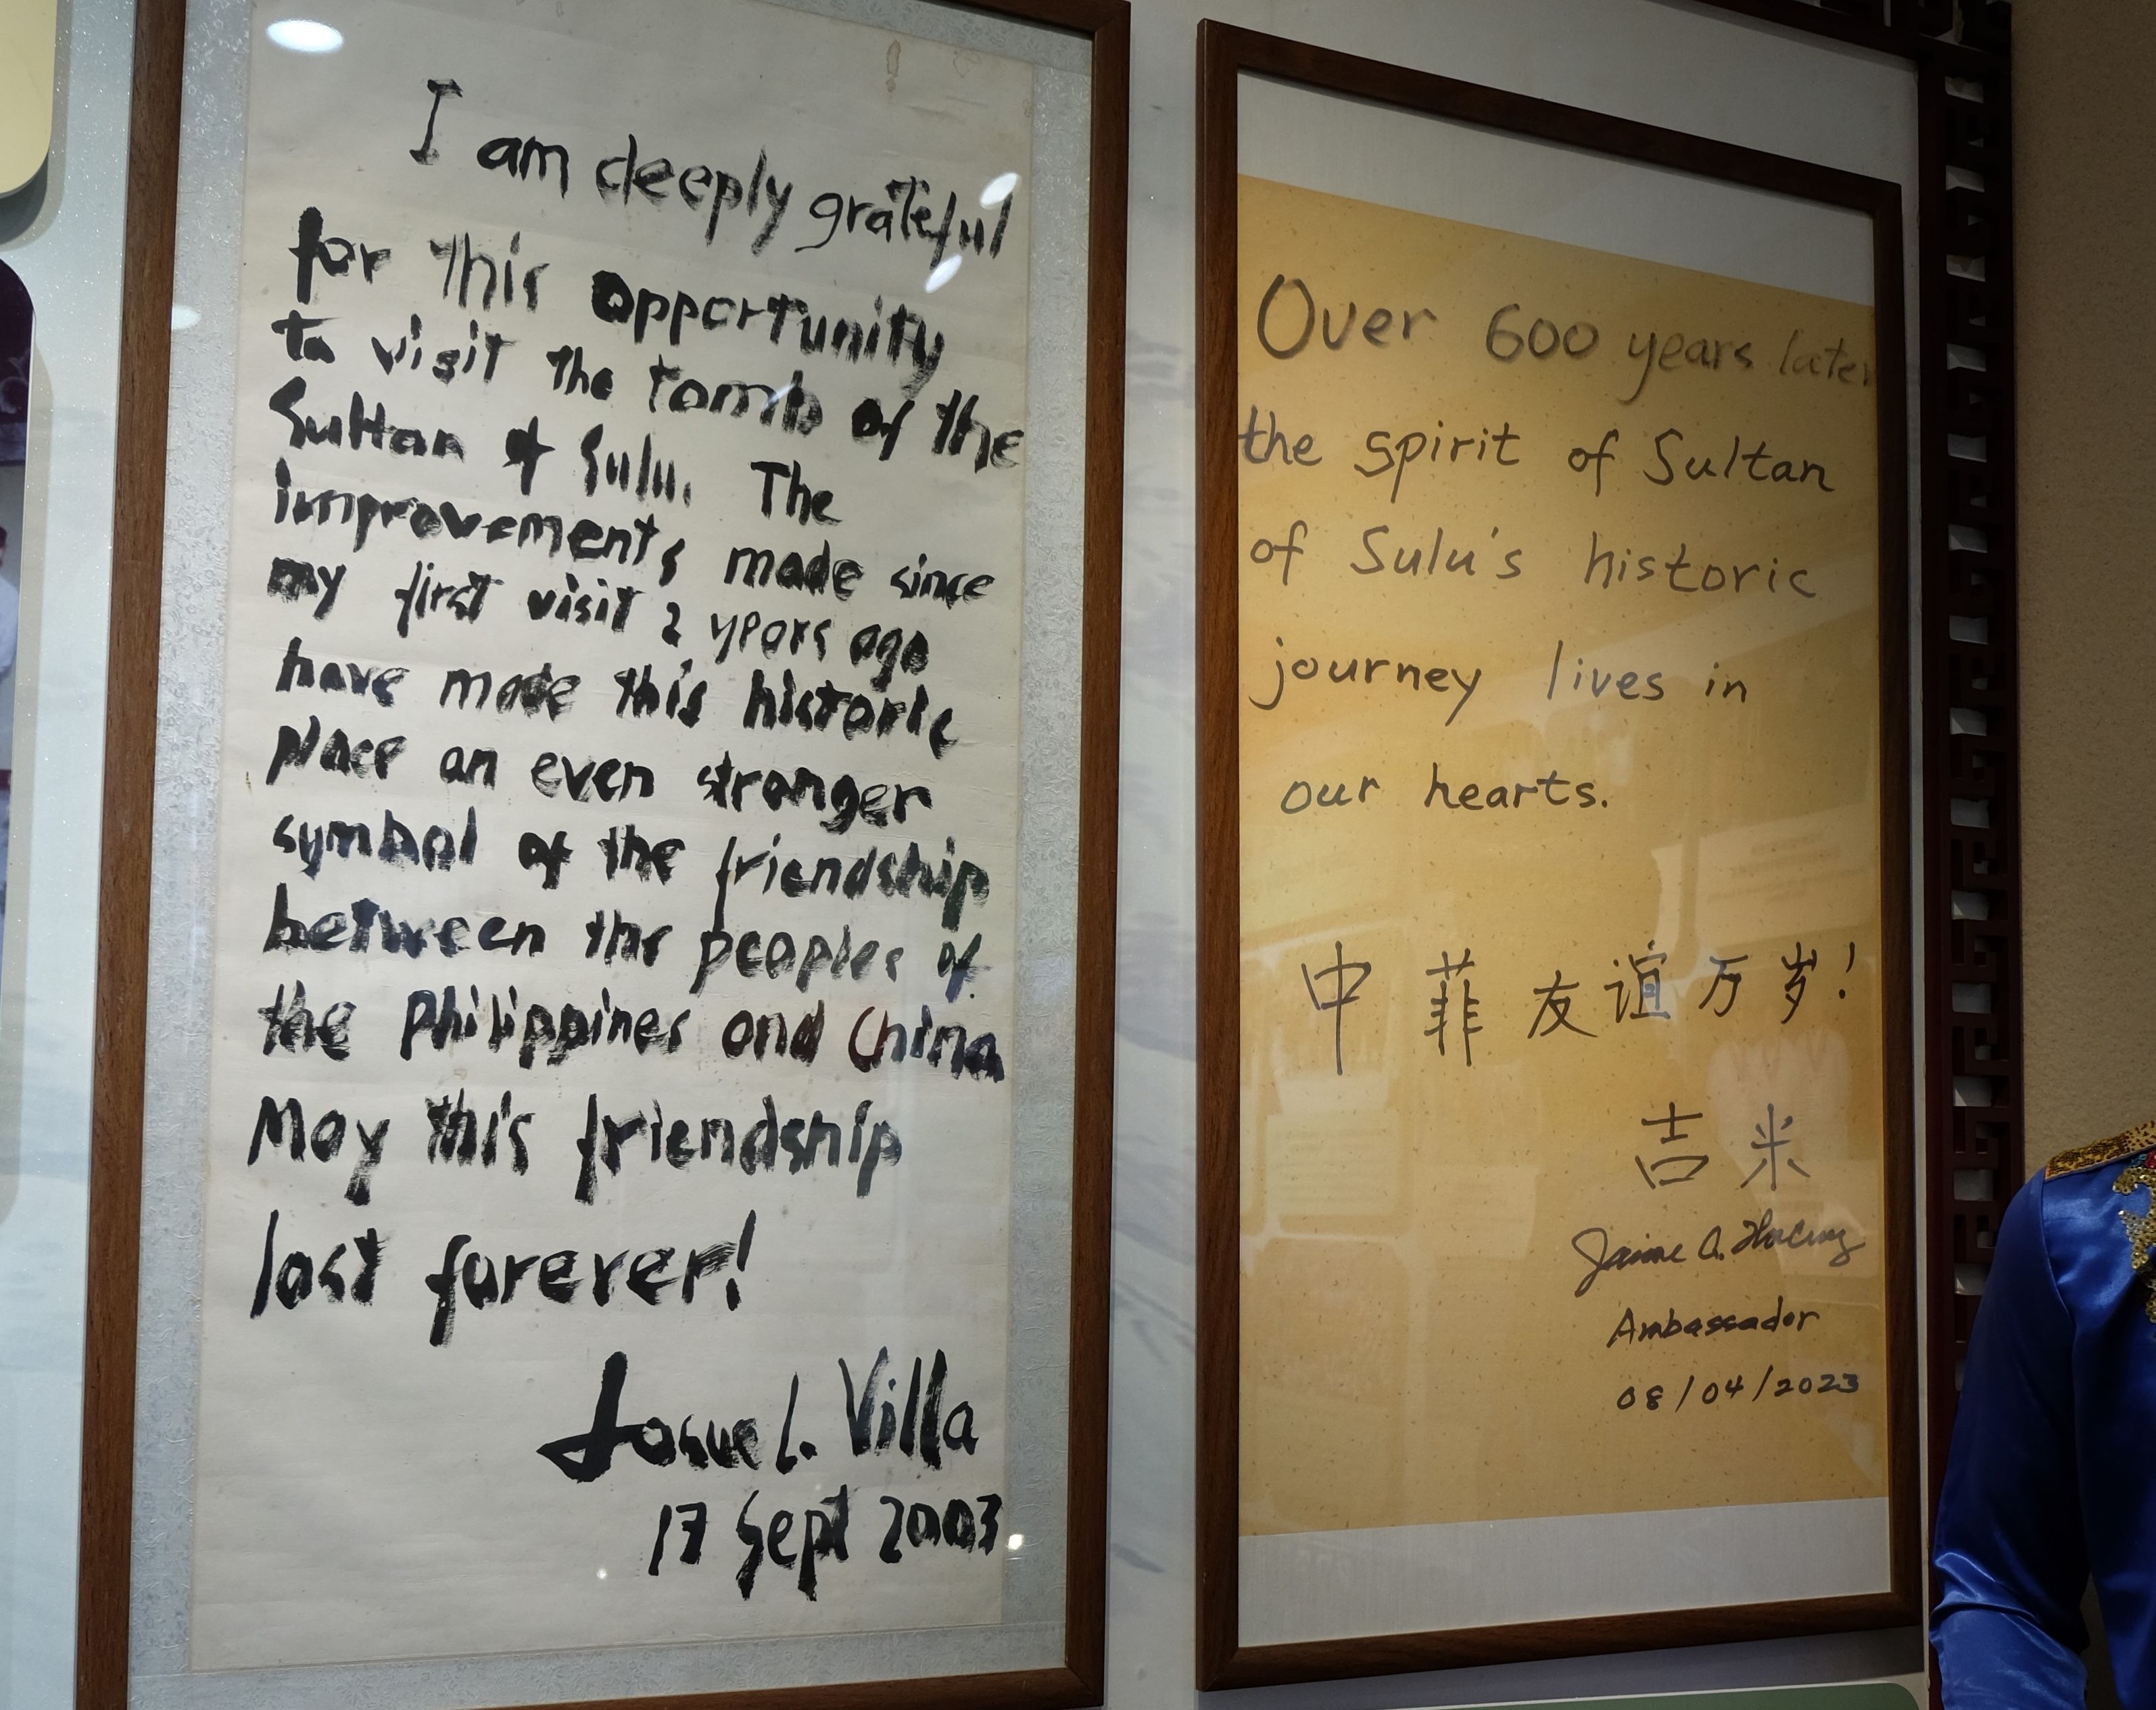 I am deeply grateful
for this opportunity
to visit the tomb of the
Sultan of Sulu. The
improvements made since
my first visit 2 years ago
have made this historic
place an even stronger
symbol of the friendship
between the peoples of
the Philippines and China
May this friendship
last forever!
Josue L. Villa
17 Sept 2003
Over 600 years later
the spirit of Sultan
of Sulu's historic
journey lives in
our hearts.
中菲友谊万岁!
吉米
Jaime A.
Ambassador
08/04/2023